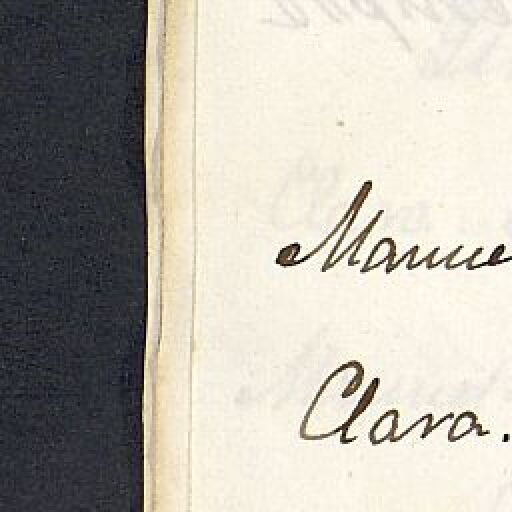 Manue
Clara.